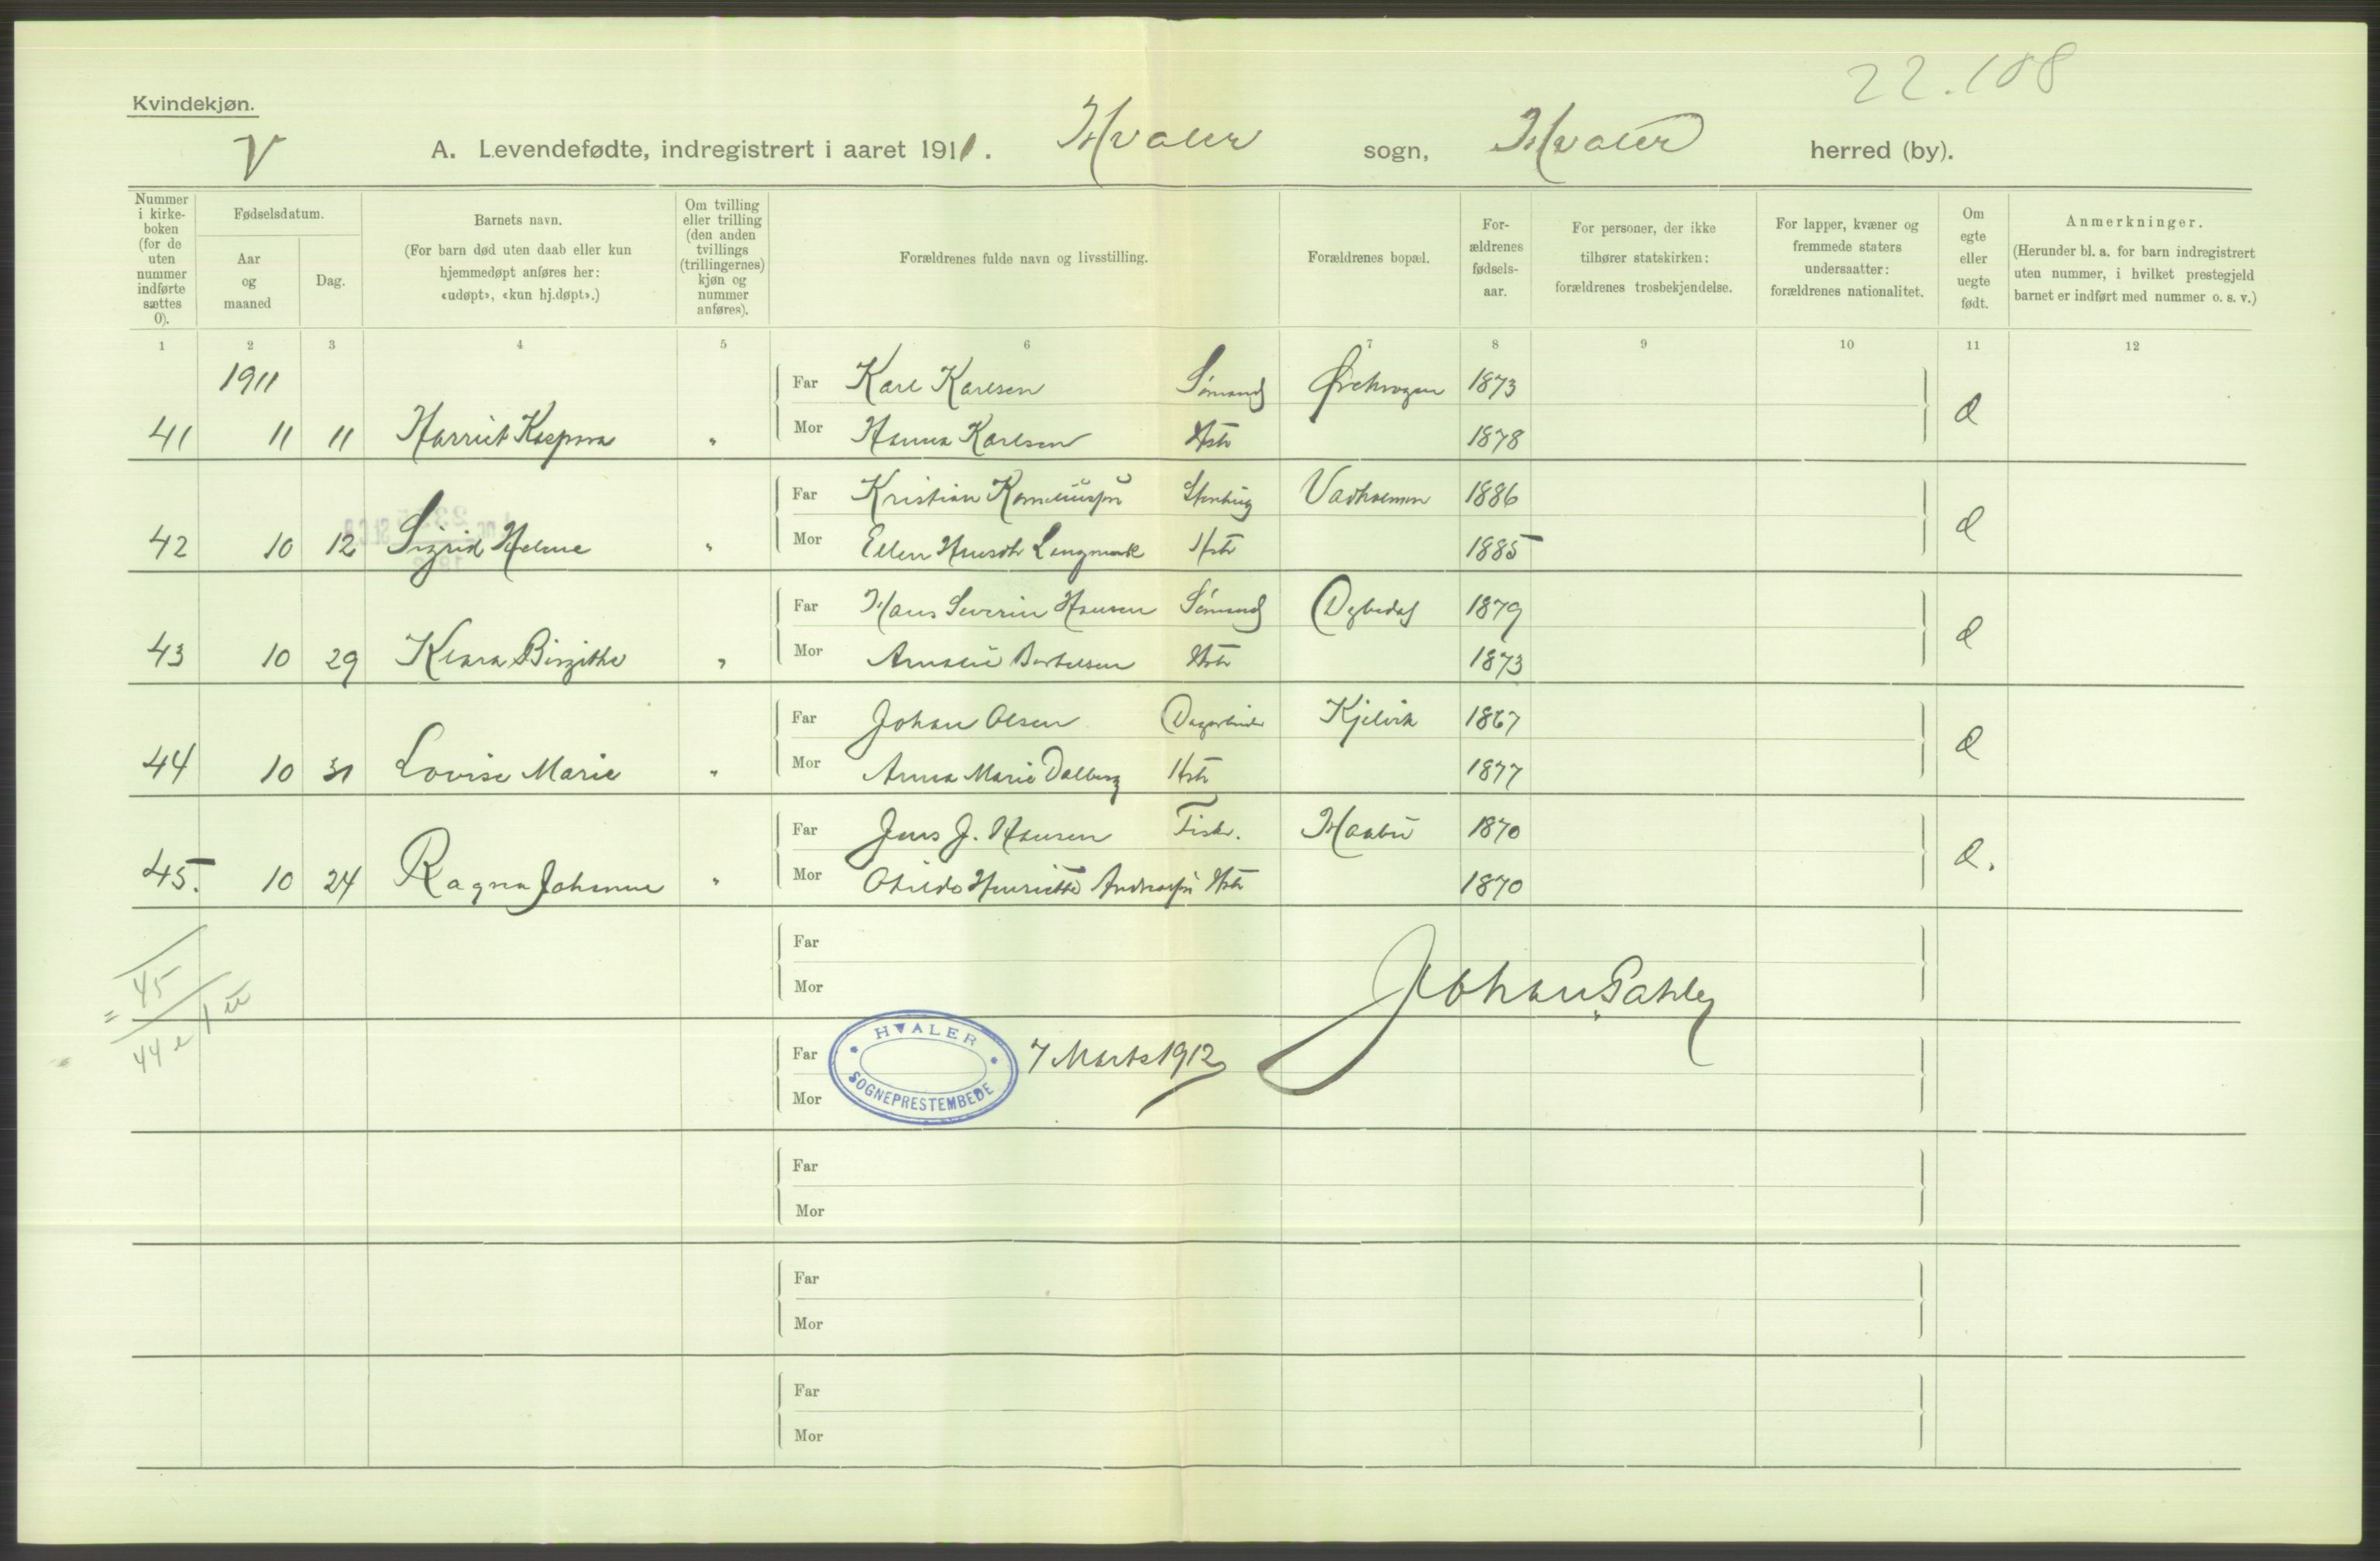 22.108
Kvindekjøn.
V
A. Levendefødte, indregistrert i aaret 1911. Hvaler sogn, Hvaler herred (by).
Nummer i kirke-boken (for de uten nummer indførte sættes 0).
Fødselsdatum.
Aar og maaned
Dag.
Barnets navn.
(For barn død uten daab eller kun hjemmedøpt anføres her: «udøpt», «kun hj.døpt».)
Om tvilling eller trilling (den anden tvillings (trillingernes) kjøn og nummer anføres).
Forældrenes fulde navn og livsstilling.
Forældrenes bopæl.
For-ældrenes fødsels-aar.
For personer, der ikke tilhører statskirken: forældrenes trosbekjendelse.
For lapper, kvæner og fremmede staters undersaatter: forældrenes nationalitet.
Om egte eller uegte født.
Anmerkninger.
(Herunder bl. a. for barn indregistrert uten nummer, i hvilket prestegjeld barnet er indført med nummer o. s. v.)
1 2 3 4 5 6 7 8 9 10 11 12
1911
Far Karl Karlsen Sømand 1873
41 11 11 Harriet " Mor Hanna Karlsen Hstr 1878 e
Far Kristian 1886
42 10 12 Sigrid Helene " Mor Ellen Langmark Hstr 1885 e
Far Hans Severin Hansen Sømand 1879
43 10 29 Klara Birgithe " Mor Amalie Bertelsen Hstr 1873 e
Far Johan Olsen Dagarbeider Kjelvik 1867
44 10 31 Lovise Marie " Mor Anna Marie Dalberg Hstr 1877 e
Far Jens J. Hansen Fisk. 1870
45. 10 24 Ragna Johanne " Mor Henriette Hstr 1870 e.
Far
Mor
45
= 44 e 1 u
Far
Mor
HVALER SOGNEPRESTEMBEDE
7 Marts 1912
Johan
Far
Mor
Far
Mor
Far
Mor